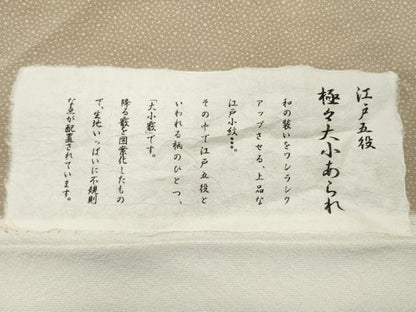 江戸五役
極々大小あられ
和の装いをワンランク
アップさせる、上品な
江戸小紋…。
その中で江戸五役と
いわれる柄のひとつ、
「大小霰」です。
降る霰を図案化したもの
で、生地いっぱいに不規則
な点が配置されています。